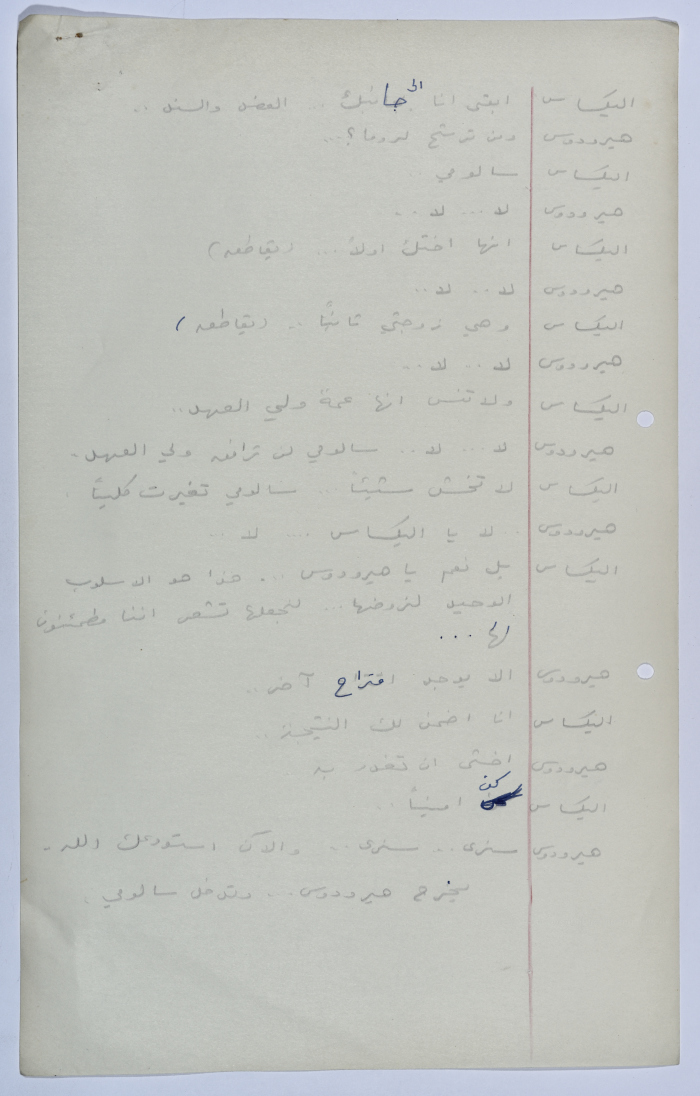 اليكساس ابقى انا الى جانبك ... العضد والسند ..
هيرودوس ومن ترشح لروما؟ ...
اليكساس سالومي
هيرودوس لا ... لا ...
اليكساس انها اختك اولاً ... (يقاطعه)
هيرودوس لا .. لا ..
اليكساس وهي زوجتي ثانيًا .. (يقاطعه)
هيرودوس لا .. لا ..
اليكساس ولا تنس انها عمة ولي العهد ..
هيرودوس لا ... لا .. سالومي لن ترافق ولي العهد .
اليكساس لا تخش شيئاً ... سالومي تغيرت كليّاً .
هيرودوس .. لا يا اليكساس .... لا ...
اليكساس بل نعم يا هيرودوس ... هذا هو الاسلوب
الوحيد لنروضها ... لنجعلها تشعر اننا مطمئنون
لها ...
هيرودوس الا يوجد اقتراح آخر ..
اليكساس انا اضمن لك النتيجة ..
هيرودوس اخشى ان تغدر بنا
اليكساس كن امنياً ..
هيرودوس سنرى .. سنرى ... والآن استودعك الله .
يخرج هيرودوس ... وتدخل سالومي .